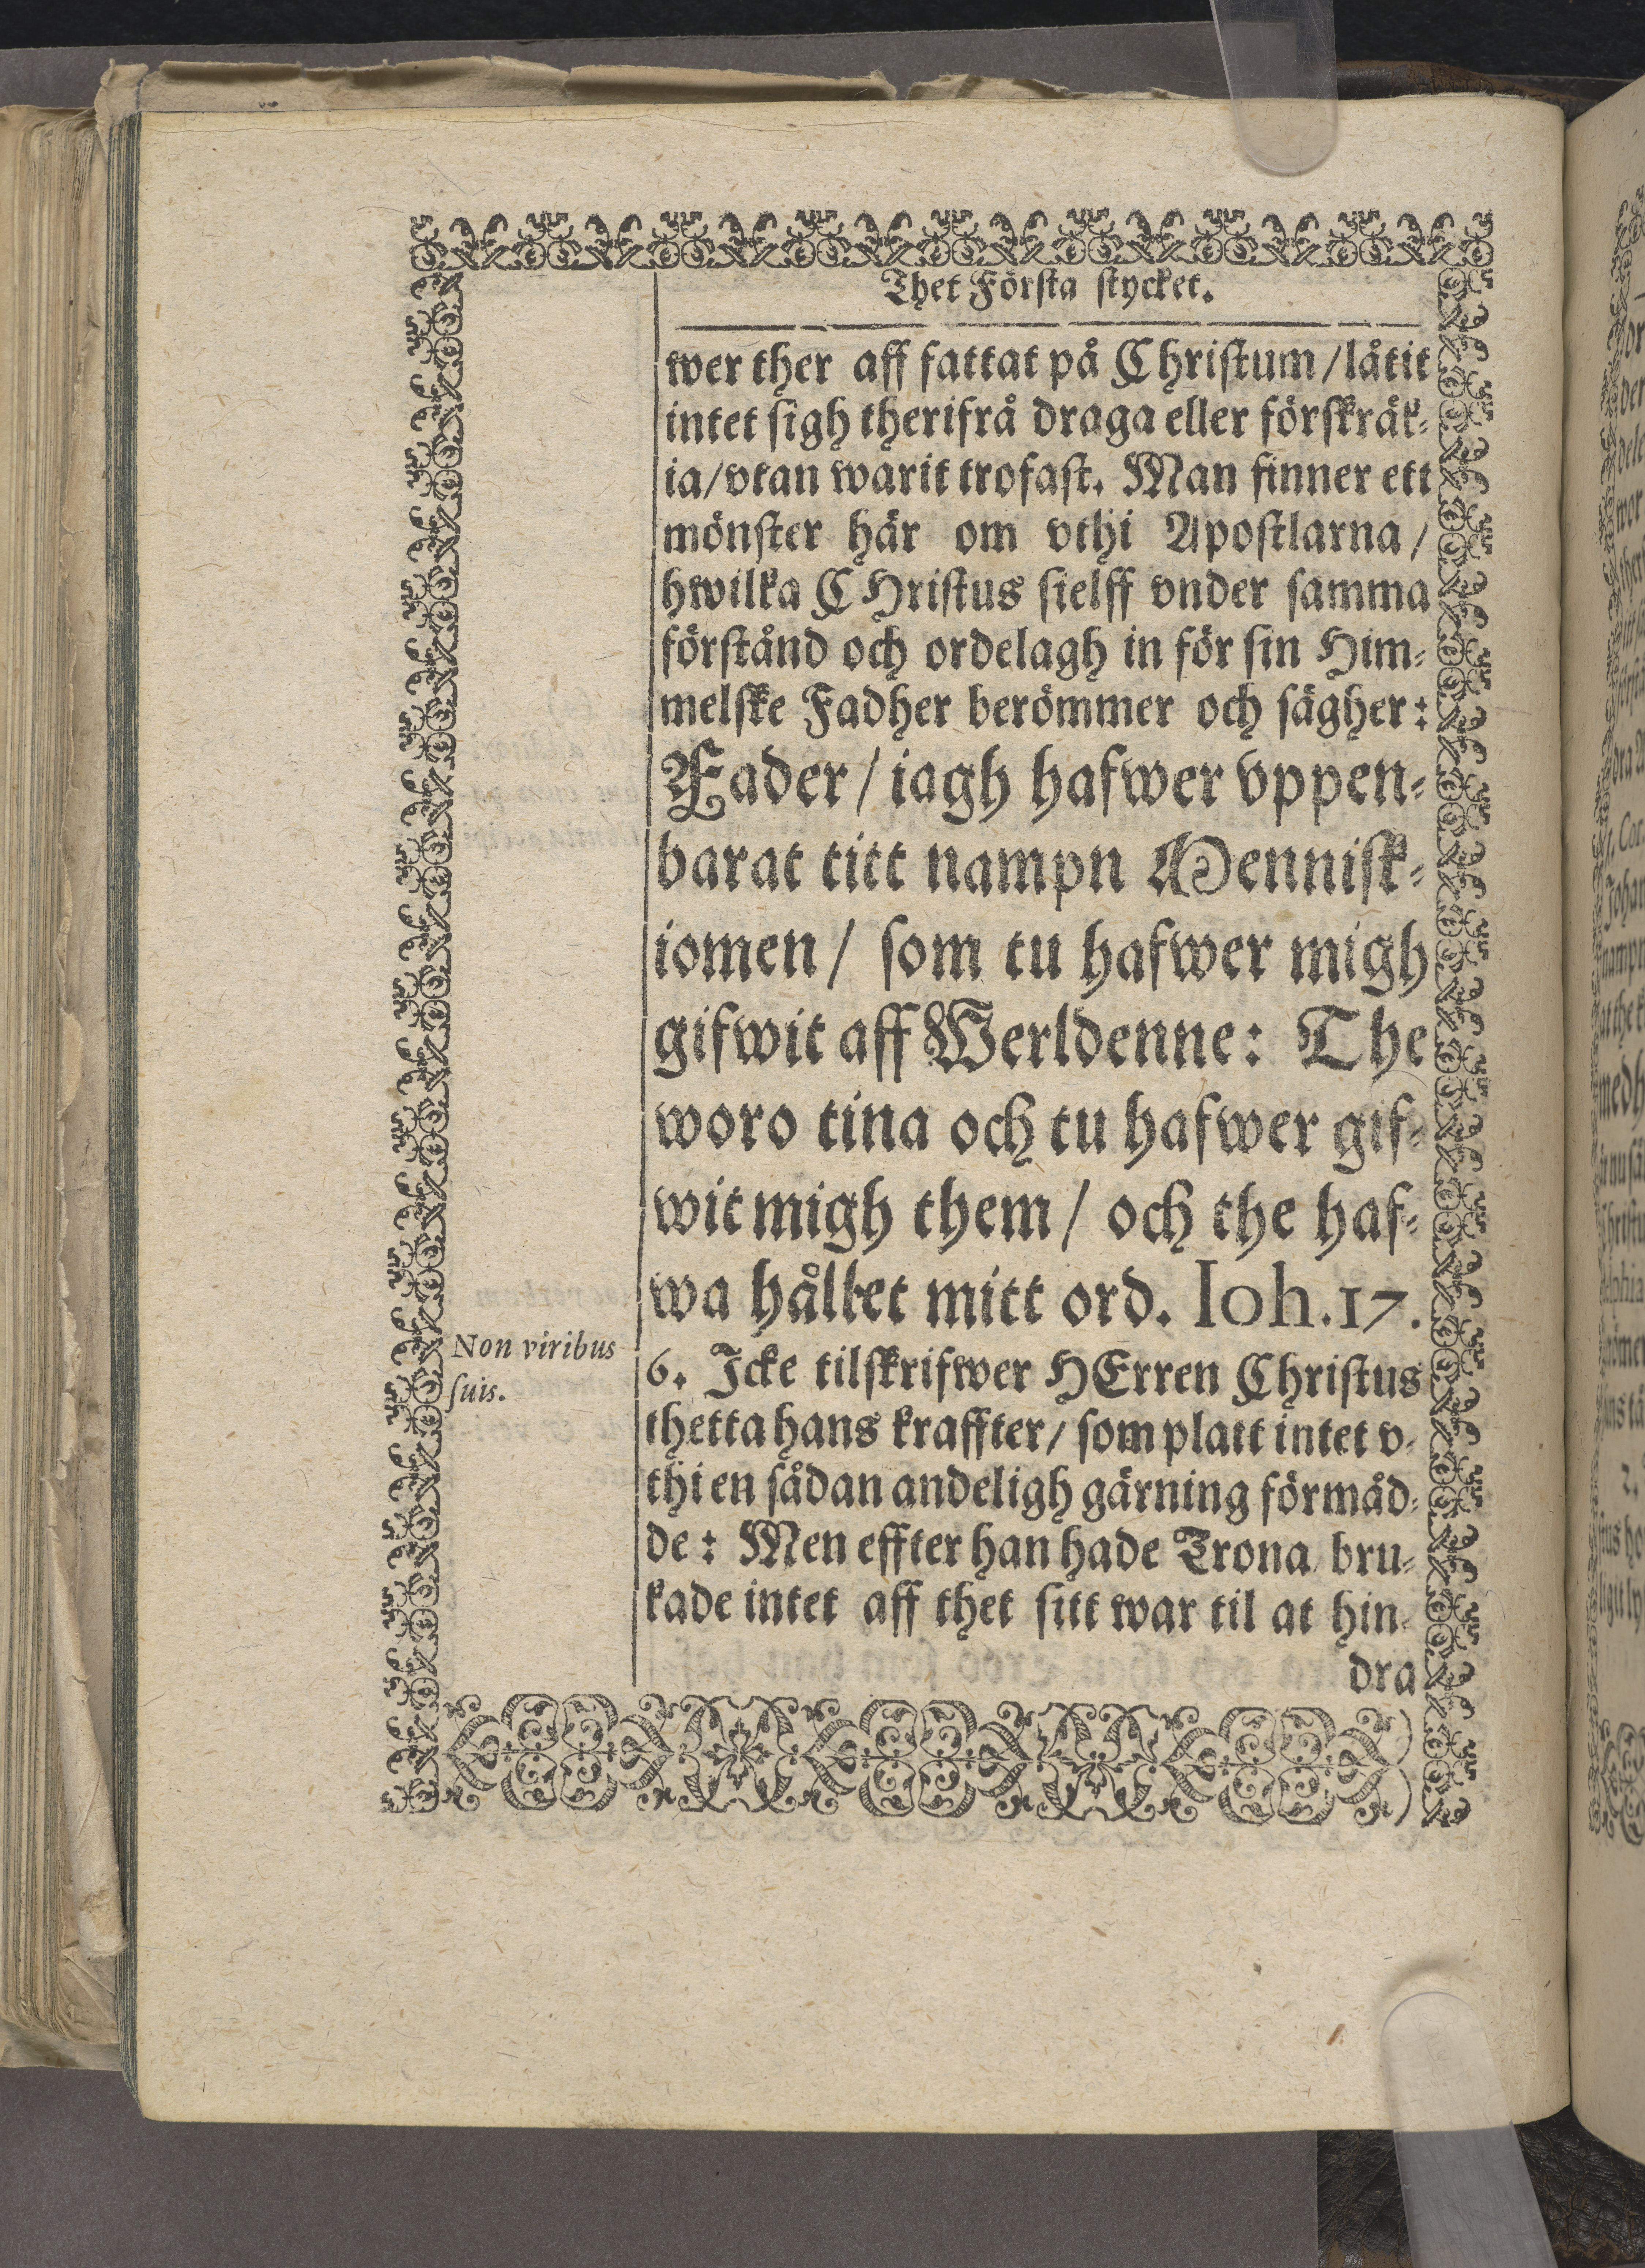 Thet Första stycket.
wer ther aff fattat på Christum / låtit
intet sigh therifrå draga eller förskräk⸗
ia / vtan warit trofast. Man finner ett
mönster här om vthi Apostlarna /
hwilka CHristus sielff vnder samma
förstånd och ordelagh in för sin Him⸗
melske Fadher berömmer och sägher:
Fader / iagh hafwer vppen⸗
barat titt nampn Mennisk⸗
iomen / som tu hafwer migh
gifwit aff Werldenne: The
woro tina och tu hafwer gif⸗
wit migh them / och the haf⸗
wa hållet mitt ord. Ioh.17.
Non viribus
suis.
6. Icke tilskrifwer HErren Christus
thetta hans kraffter / som platt intet v⸗
thi en sådan andeligh gärning förmåd⸗
de: Men effter han hade Trona bru⸗
kade intet aff thet sitt war til at hin⸗
dra